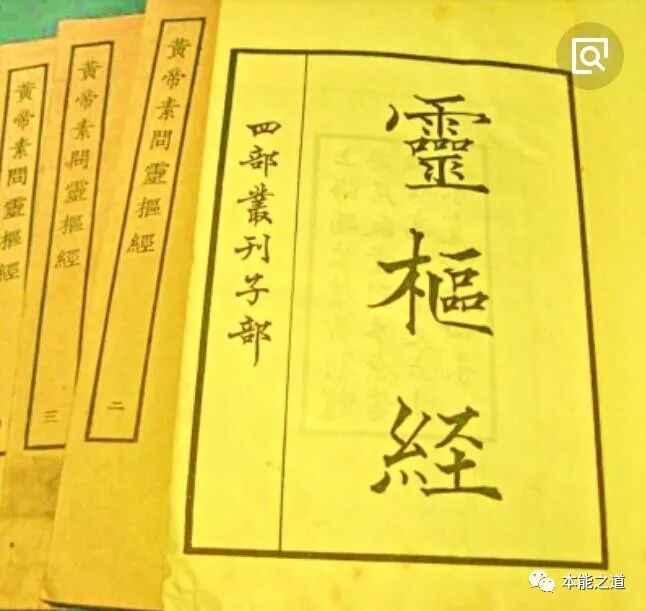 靈樞経
四部叢刊子部
黃帝素問靈樞經
二
黃帝素問靈樞經
三
黃帝素問靈樞經
本能之道